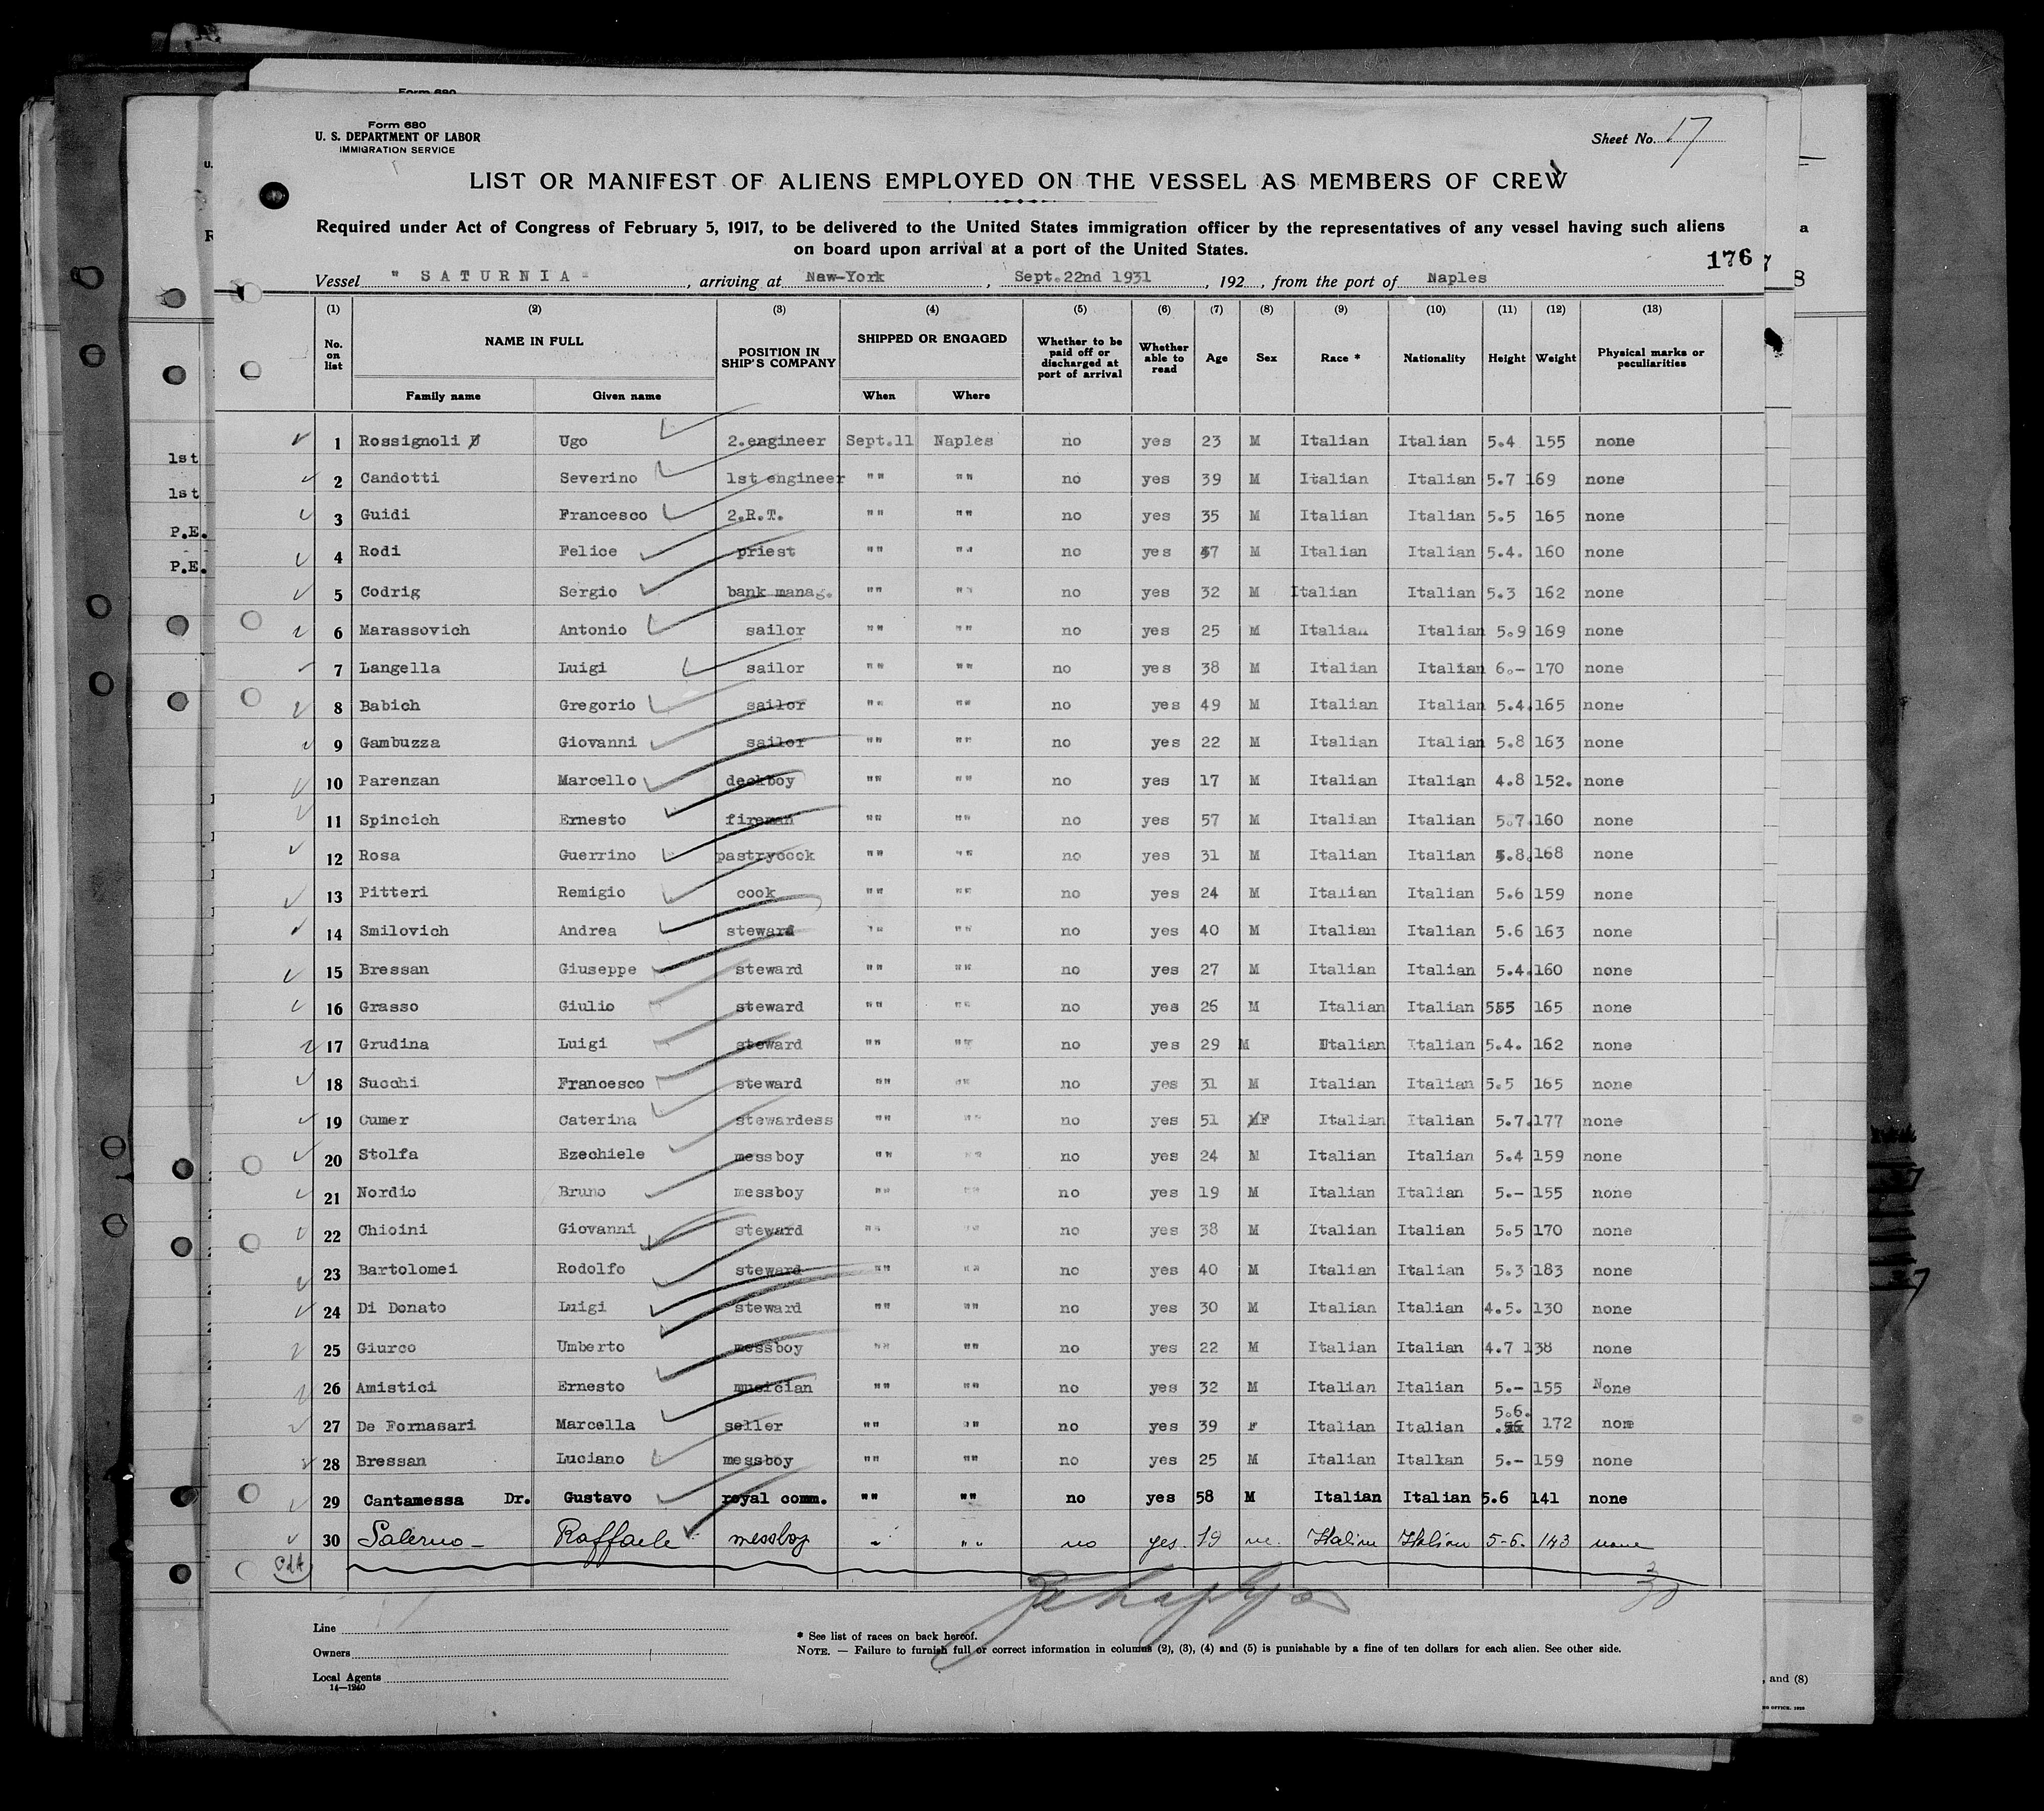 Form 680
Form 680
U. S. DEPARTMENT OF LABOR
IMMIGRATION SERVICE
Sheet No. 17
LIST OR MANIFEST OF ALIENS EMPLOYED ON THE VESSEL AS MEMBERS OF CREW
Required under Act of Congress of February 5, 1917, to be delivered to the United States immigration officer by the representatives of any vessel having such aliens
on board upon arrival at a port of the United States.
176
Vessel " SATURNIA " , arriving at Naw-York , Sept.22nd 1931 , 192 , from the port of Naples
(1) (2) (3) (4) (5) (6) (7) (8) (9) (10) (11) (12) (13)
No. on list NAME IN FULL POSITION IN SHIP'S COMPANY SHIPPED OR ENGAGED Whether to be paid off or discharged at port of arrival Whether able to read Age Sex Race * Nationality Height Weight Physical marks or peculiarities
Family name Given name When Where
1 Rossignoli Ugo 2.engineer Sept.11 Naples no yes 23 M Italian Italian 5.4 155 none
2 Candotti Severino 1st engineer "" "" no yes 39 M Italian Italian 5.7 169 none
3 Guidi Francesco 2.R.T. "" "" no yes 35 M Italian Italian 5.5 165 none
4 Rodi Felice priest "" "" no yes 37 M Italian Italian 5.4. 160 none
5 Codrig Sergio bank manag. "" "" no yes 32 M Italian Italian 5.3 162 none
6 Marassovich Antonio sailor "" "" no yes 25 M Italian Italian 5.9 169 none
7 Langella Luigi sailor "" "" no yes 38 M Italian Italian 6.- 170 none
8 Babich Gregorio sailor "" "" no yes 49 M Italian Italian 5.4. 165 none
9 Gambuzza Giovanni sailor "" "" no yes 22 M Italian Italian 5.8 163 none
10 Parenzan Marcello deckboy "" "" no yes 17 M Italian Italian 4.8 152. none
11 Spincich Ernesto fireman "" "" no yes 57 M Italian Italian 5.7. 160 none
12 Rosa Guerrino pastrycook "" "" no yes 31 M Italian Italian 5.8. 168 none
13 Pitteri Remigio cook "" "" no yes 24 M Italian Italian 5.6 159 none
14 Smilovich Andrea steward "" "" no yes 40 M Italian Italian 5.6 163 none
15 Bressan Giuseppe steward "" "" no yes 27 M Italian Italian 5.4. 160 none
16 Grasso Giulio steward "" "" no yes 26 M Italian Italian 555 165 none
17 Grudina Luigi steward "" "" no yes 29 M Italian Italian 5.4. 162 none
18 Succhi Francesco steward "" "" no yes 31 M Italian Italian 5.5 165 none
19 Cumer Caterina stewardess "" "" no yes 51 F Italian Italian 5.7. 177 none
20 Stolfa Ezechiele messboy "" "" no yes 24 M Italian Italian 5.4 159 none
21 Nordio Bruno messboy "" "" no yes 19 M Italian Italian 5.- 155 none
22 Chioini Giovanni steward "" "" no yes 38 M Italian Italian 5.5 170 none
23 Bartolomei Rodolfo steward "" "" no yes 40 M Italian Italian 5.3 183 none
24 Di Donato Luigi steward "" "" no yes 30 M Italian Italian 4.5. 130 none
25 Giurco Umberto messboy "" "" no yes 22 M Italian Italian 4.7 138 none
26 Amistici Ernesto musician "" "" no yes 32 M Italian Italian 5.- 155 None
27 De Fornasari Marcella seller "" "" no yes 39 F Italian Italian 5.6. 172 none
28 Bressan Luciano messboy "" "" no yes 25 M Italian Italkan 5.- 159 none
29 Cantamessa Dr. Gustavo royal comm. "" "" no yes 58 M Italian Italian 5.6 141 none
30 Salerno - Raffaele messboy " "" no yes. 19 m. Italian Italian 5-6. 143 none
30
Line
Owners
Local Agents
14—1240
* See list of races on back hereof.
NOTE. — Failure to furnish full or correct information in columns (2), (3), (4) and (5) is punishable by a fine of ten dollars for each alien. See other side.
1st
1st
P.E.
P.E.
, and (8)